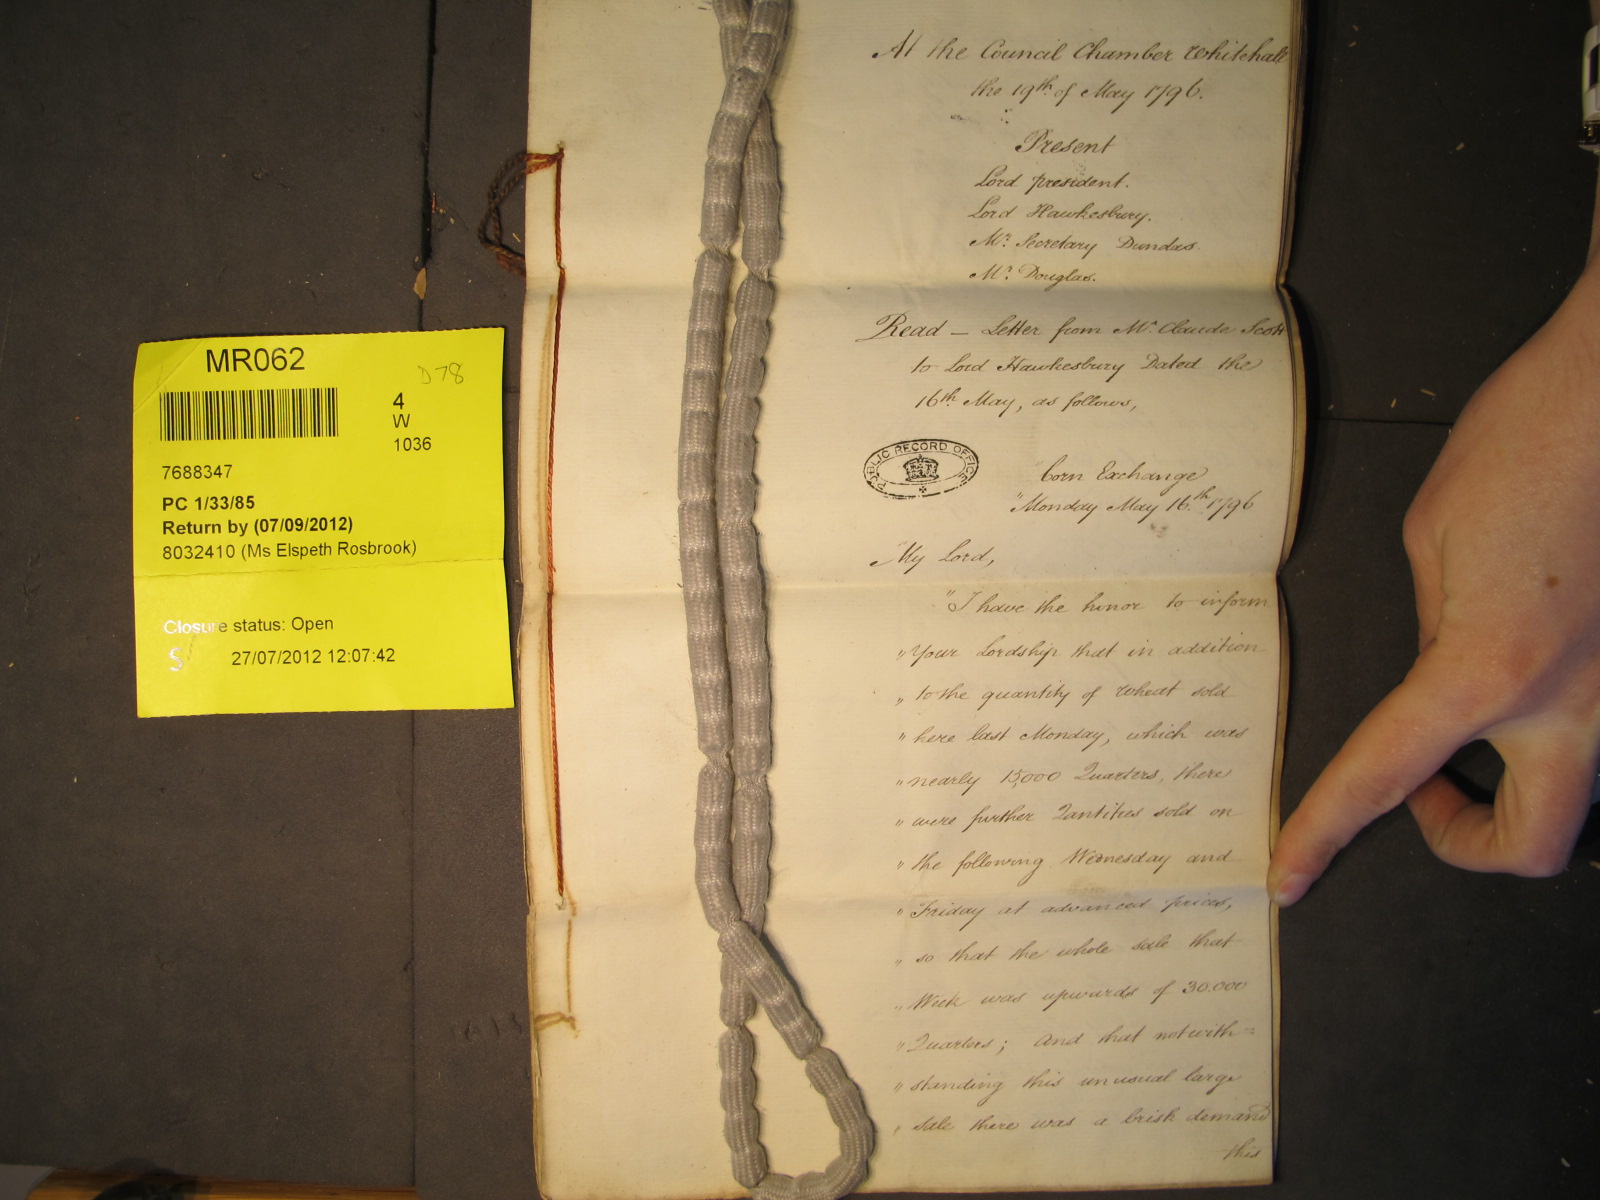 MR062
D78
4
W
1036
7688347
PC 1/33/85
Return by (07/09/2012)
8032410 (Ms Elspeth Rosbrook)
Closure status: Open
S
27/07/2012 12:07:42
At the Council Chamber Whitehall
the 19th. of May 1796.
Present
Lord president.
Lord Hawkesbury.
Mr. Secretary Dundas.
Mr. Douglas.
Read – Letter from Mr. Claude Scott
to Lord Hawkesbury Dated the
16th. May, as follows,
PUBLIC RECORD OFFICE
Corn Exchange
"Monday May 16th. 1796
My Lord,
"I have the honor to inform
"Your Lordship that in addition
"to the quantity of Wheat sold
"here last Monday, which was
"nearly 15,000 Quarters, there
"were further Qantities sold on
"the following Wednesday and
"Friday at advanced prices,
"so that the whole sale that
"Week was upwards of 30.000
"Quarters; and that notwith=
"standing this unusual large
"Sale there was a brisk demand
this